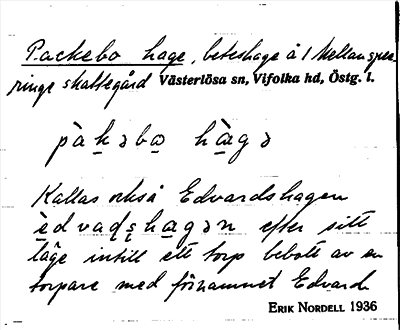 Packebo hage, beteshage å 1 Mellansper-
ringe skattegård Västerlösa sn, Vifolka hd, Östg. l.
pàkəbo hàgə
Kallas också Edvardshagen
èdvaḍṣhagən efter sitt
läge intill ett torp bebott av en
torpare med förnamnet Edvard.
ERIK NORDELL 1936